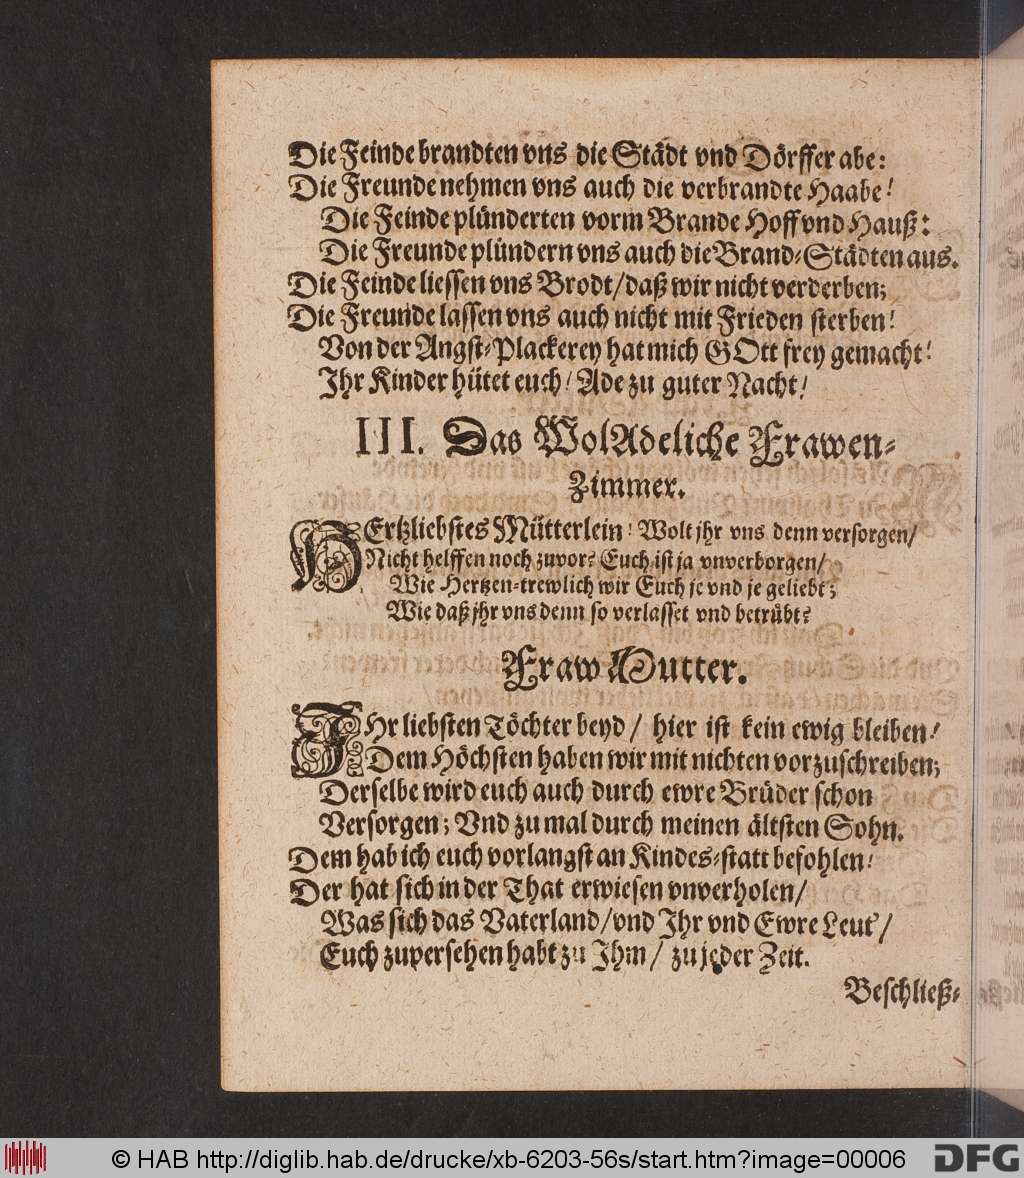 Die Feinde brandten vns die Städt vnd Dörffer abe:
Die Freunde nehmen vns auch die verbrandte Haabe!
Die Feinde plünderten vorm Brande Hoff vnd Hauß:
Die Freunde plündern vns auch die Brand-Städten aus.
Die Feinde liessen vns Brodt/ daß wir nicht verderben;
Die Freunde lassen vns auch nicht mit Frieden sterben!
Von der Angst-Plackerey hat mich GOtt frey gemacht!
Ihr Kinder hütet euch/ Ade zu guter Nacht/
III. Das WolAdeliche Frawen-
Zimmer.
HErtzliebstes Mütterlein! Wolt jhr vns denn versorgen/
Nicht helffen noch zuvor? Euch ist ja vnverborgen/
Wie Hertzen-trewlich wir Euch je vnd je geliebt;
Wie daß jhr vns denn so verlasset vnd betrübt?
Fraw Mutter.
IHr liebsten Töchter beyd/ hier ist kein ewig bleiben!
Dem Höchsten haben wir mit nichten vorzuschreiben;
Derselbe wird euch auch durch ewre Brüder schon
Versorgen; Vnd zumal durch meinen ältsten Sohn.
Dem hab ich euch vorlangst an Kindes-statt befohlen!
Der hat sich in der That erwiesen vnverholen/
Was sich das Vaterland/ vnd Ihr vnd Ewre Leut'/
Euch zuversehen habt zu Ihm/ zu jeder Zeit.
Beschließ-
© HAB http://diglib.hab.de/drucke/xb-6203-56s/start.htm?image=00006
DFG